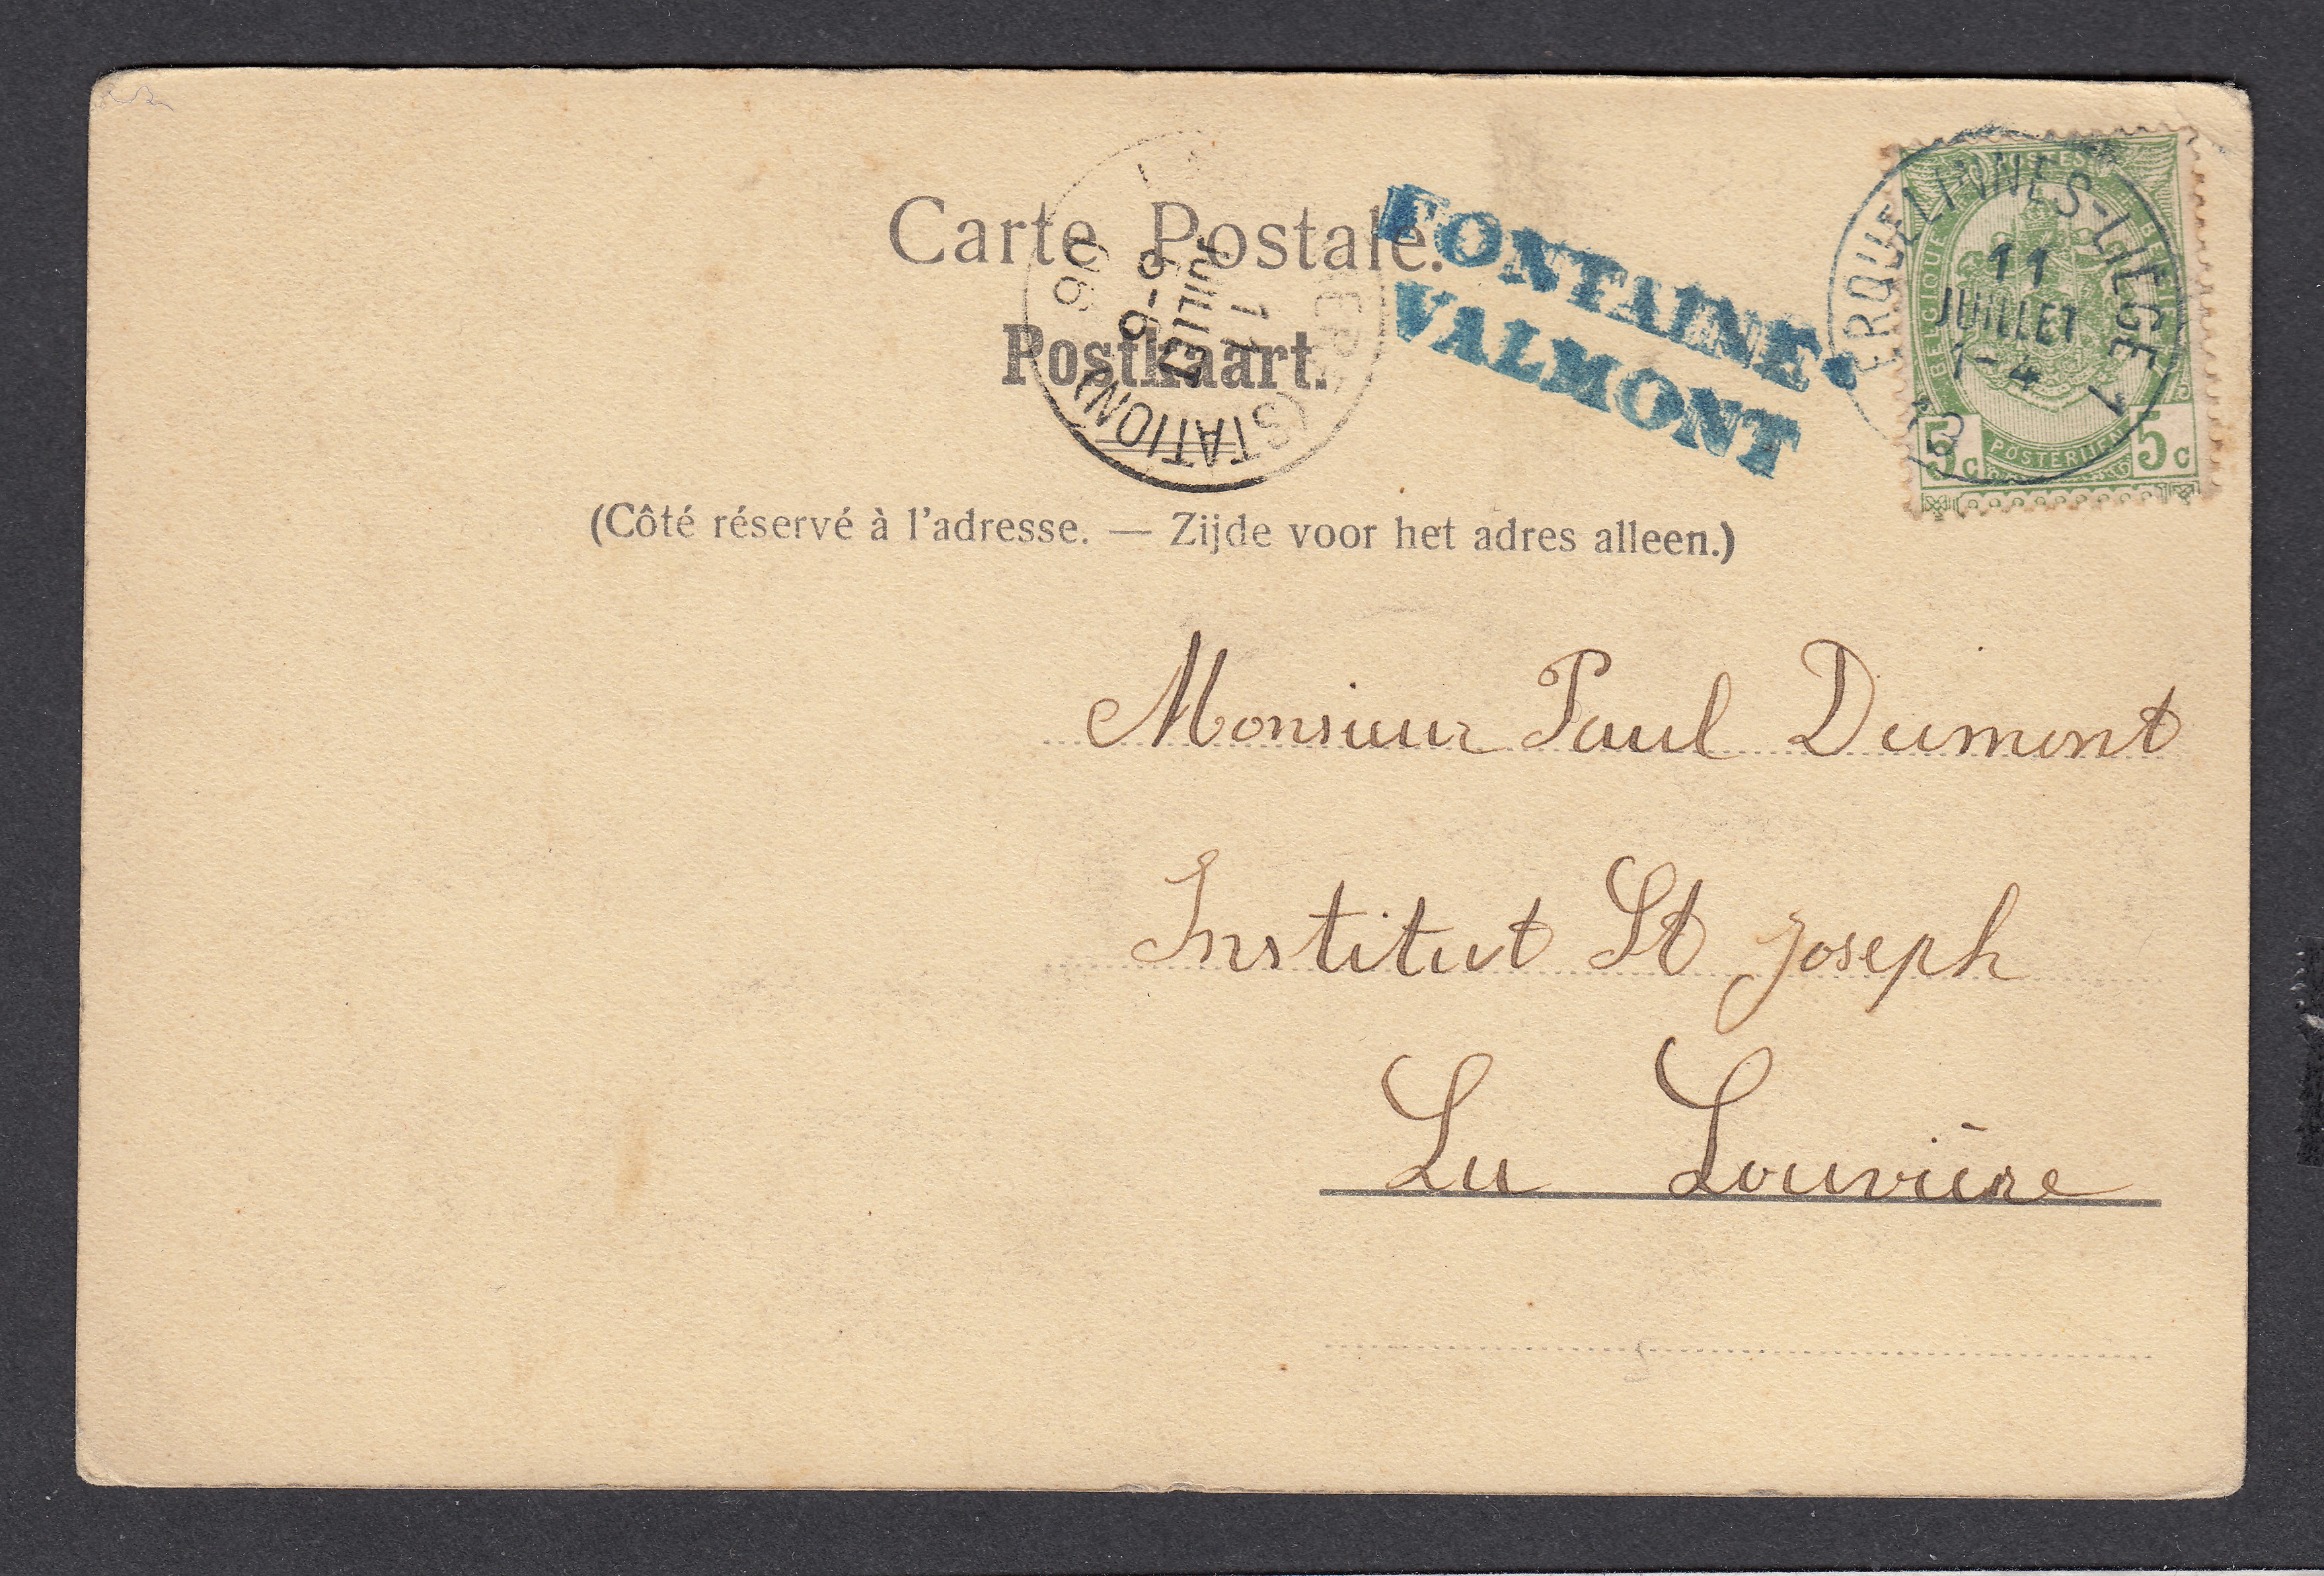 Carte Postale.
Postkaart.
(STATION)
11
JUILLET
6-6
FONTAINE-
VALMONT
ERQUELINNES-LIEGE 1
11
JUILLET
1-4
POSTES
BELGIQUE
BELGIË
5c
POSTERIJEN
5c
(Côté réservé à l'adresse. — Zijde voor het adres alleen.)
Monsieur Paul Dumont
Institut St Joseph
La Louvière